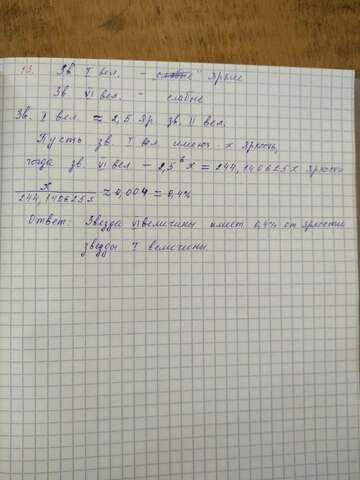 13. Зв I вел. - ярые
Зв VI вел. - слабые
Зв. I вел ≈ 2,5 яр. зв. II вел.
Пусть зв. I вел имеют х яркость,
тогда зв VI вел - 2,5⁶х = 244,140625х яркости
х/244,140625х ≈ 0,004 = 0,4%
Ответ: Звезда VI величины имеет 0,4% от яркости
звезды I величины.